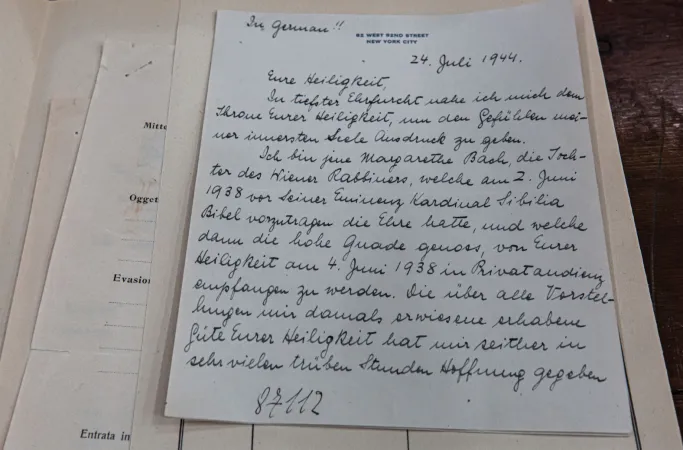 In German!!
82 WEST REND STREET
NEW YORK CITY
24. Juli 1944.
Eure Heiligkeit,
In tiefster Ehrfurcht nahe ich mich dem
Throne Eurer Heiligkeit, um den Gefühlen mei-
ner innersten Seele Ausdruck zu geben.
Ich bin jene Margarethe Bach, die Toch-
ter des Wiener Rabbiners, welche am 2. Juni
1938 vor Seiner Eminenz Kardinal Sibilia
Bibel vorzutragen die Ehre hatte, und welche
dann die hohe Gnade genoss, von Eurer
Heiligkeit am 4. Juni 1938 in Privataudienz
empfangen zu werden. Die über alle Vorstel-
lungen mir damals erwiesene erhabene
Güte Eurer Heiligkeit hat mir seither in
sehr vielen trüben Stunden Hoffnung gegeben
87112
Mitte
Ogget
Evasion
Entrata in